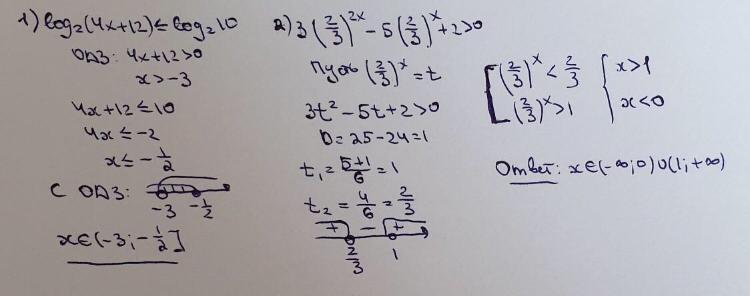 1) log₂(4x+12) ≤ log₂10
ОДЗ: 4x+12>0
x>-3
4x+12 ≤ 10
4x ≤ -2
x ≤ -1/2
С ОДЗ:
-3 -1/2
x∈(-3;-1/2]
2) 3(2/3)^2x - 5(2/3)^x + 2>0
Пусть (2/3)^x = t
3t² - 5t + 2>0
D = 25 - 24 = 1
t₁ = 5+1/6 = 1
t₂ = 4/6 = 2/3
+ - +
2/3 1
[(2/3)^x < 2/3 { x>1
(2/3)^x > 1 x<0
Ответ: x∈(-∞;0)∪(1;+∞)